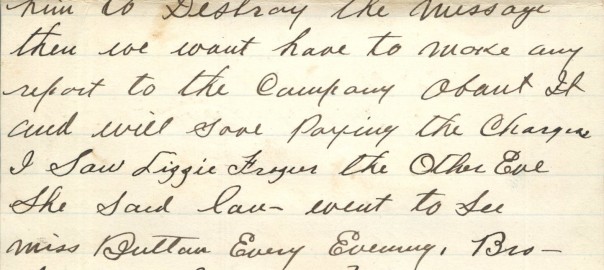 him to Destroy the Message
then we want have to make any
report to the Company about It
and will save Paying the Charges
I Saw Lizzie Frazier the Other Eve
She Said Lau- went to See
miss Button Every Evening. Bro-